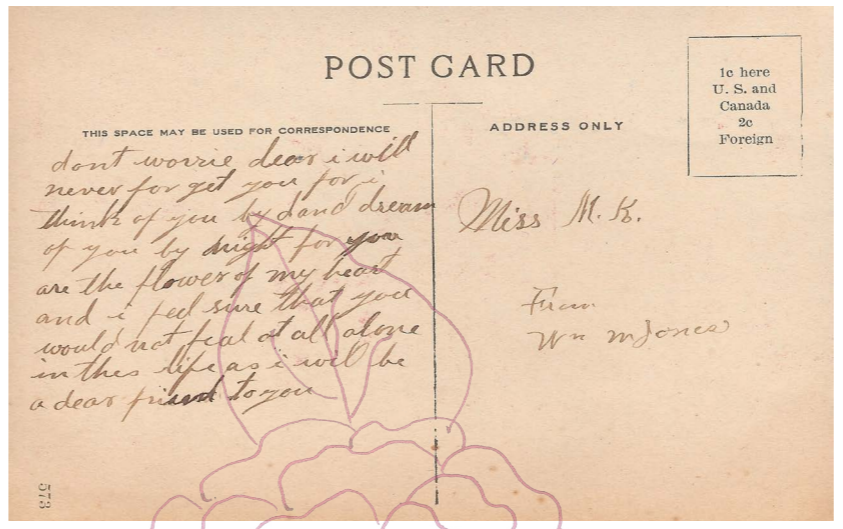 POST CARD
1c here
U. S. and
Canada
2c
Foreign
THIS SPACE MAY BE USED FOR CORRESPONDENCE
ADDRESS ONLY
dont worrie dear i will
never for get you for i
think of you by dand dream
of you by night for you
are the flower of my heart
and i feel sure that you
would not feal at all alone
in thes life as i will be
a dear friend to you
Miss M. K.
From
Wm m Jones
573